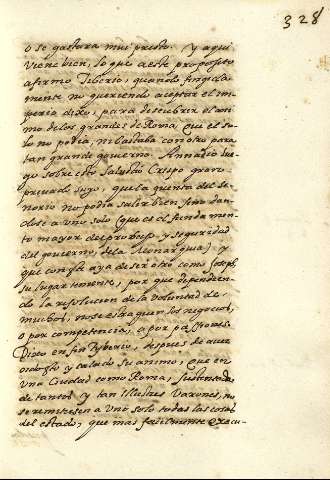 328
o se gastara mui presto. Y aqui
viene bien, lo que a este proposito
afirmo Tiberio, quando fingida
mente no queriendo aceptar el im
perio dixo, para descubrir el ani
mo de los grandes de Roma, que el so
lo no podia, ni bastaba con otro para
tan grande gouierno. Annadio lue
go sobre esto Salustio Crispo gran
priuado suyo, que la quenta del se
ñorio no podia salir bien, sino dan
dose a uno solo (que es el fundamen
to mayor del y seguridad
del gouierno, de la Monarquia) y
que con este aya de ser otro como Joseph,
su lugarteniente, por que dependien
do la resolucion de la voluntad de
muchos, no se estraguen los negocios,
o por competencia, o por passiones.
Dixo en fin Tyberio, despues de auer
oido y calado su animo, que en
una Ciudad como Roma, sustentada
de tantos y tan Illustres Varones, no
se remitiesen a uno solo todas las cosas
del estado, que mas facilmente execu-